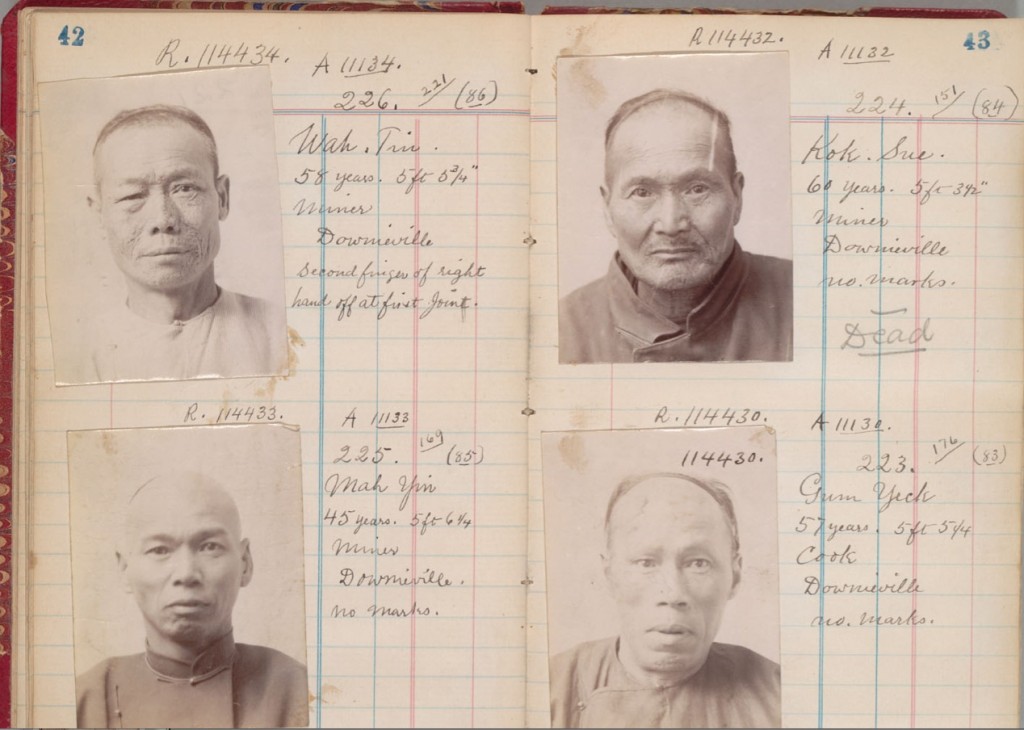 42
R. 114434.
A 11134.
226. 221/ (86)
Wah. Tin.
58 years. 5ft 5 3/4"
Miner
Downieville
Second finger of right
hand off at first Joint.
R. 114433.
A 11133
225. 169/ (85)
Mah Yin
45 years. 5ft 6 1/4
Miner
Downieville.
no marks.
43
R 114432.
A 11132
224. 151/ (84)
Kok. Sue.
60 years. 5ft 3 1/2"
Miner
Downieville
no. marks.
Dead
R. 114430.
A 11130.
114430.
223. 176/ (83)
Gum Yeck
57 years. 5ft 5 1/4
Cook
Downieville
no. marks.